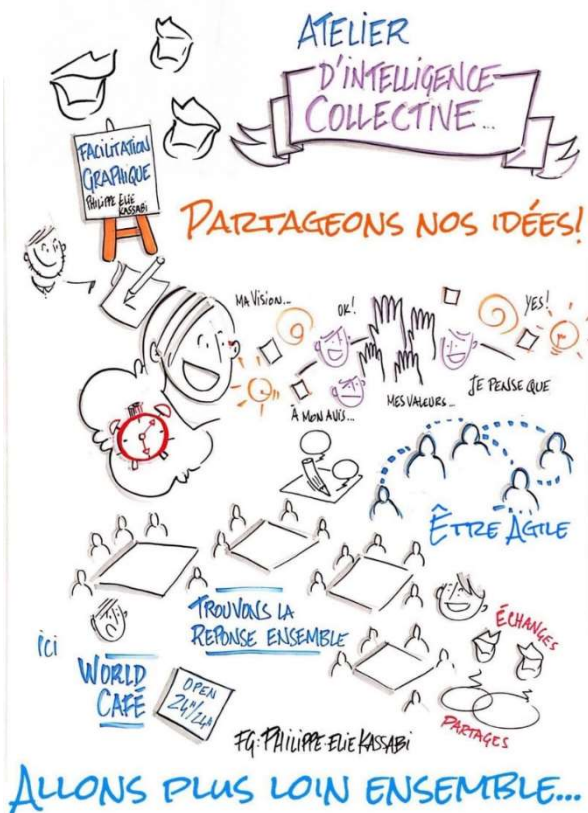 ATELIER
D'INTELLIGENCE
COLLECTIVE...
FACILITATION
GRAPHIQUE
PHILIPPE ELIE
KASSABI
PARTAGEONS NOS IDÉES!
MA VISION...
OK!
YES!
À MON AVIS...
MES VALEURS...
JE PENSE QUE
ÊTRE AGILE
TROUVONS LA
REPONSE ENSEMBLE
ÉCHANGES
ici
WORLD
CAFÉ
OPEN
24H/24H
PARTAGES
FG: PHILIPPE-ELIE KASSABI
ALLONS PLUS LOIN ENSEMBLE...